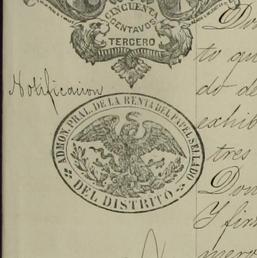 CINCUENTA
CENTAVOS
TERCERO
Notificacion
ADMON. PRAL. DE LA RENTA DEL PAPEL SELLADO
DEL DISTRITO
Do
to qu
do de
exhib
tres
Don
Y fir
mero